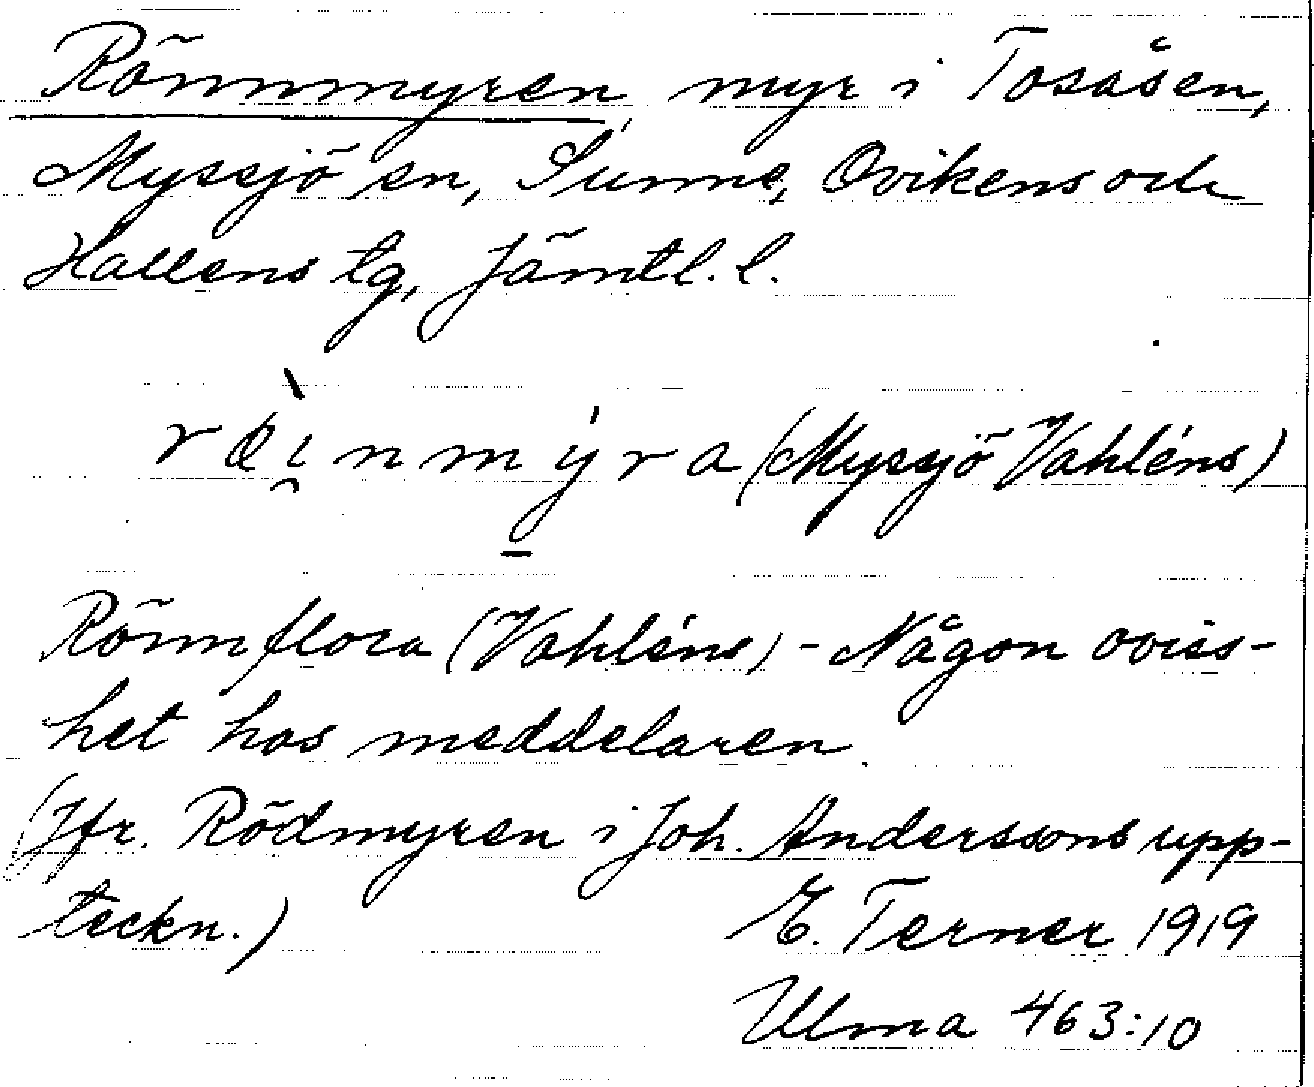 Rönnmyren, myr i Tosåsen,
Myssjö sn, Sunne, Ovikens och
Hallens tg, Jämtl. l.
rœ̀i̯nmý̱ra (Myssjö Vahléns)
Rönnflora (Vahléns) - Någon oviss-
het hos meddelaren.
(Jfr. Rödmyren i Joh. Anderssons upp-
teckn.)
E. Terner 1919
Ulma 463:10